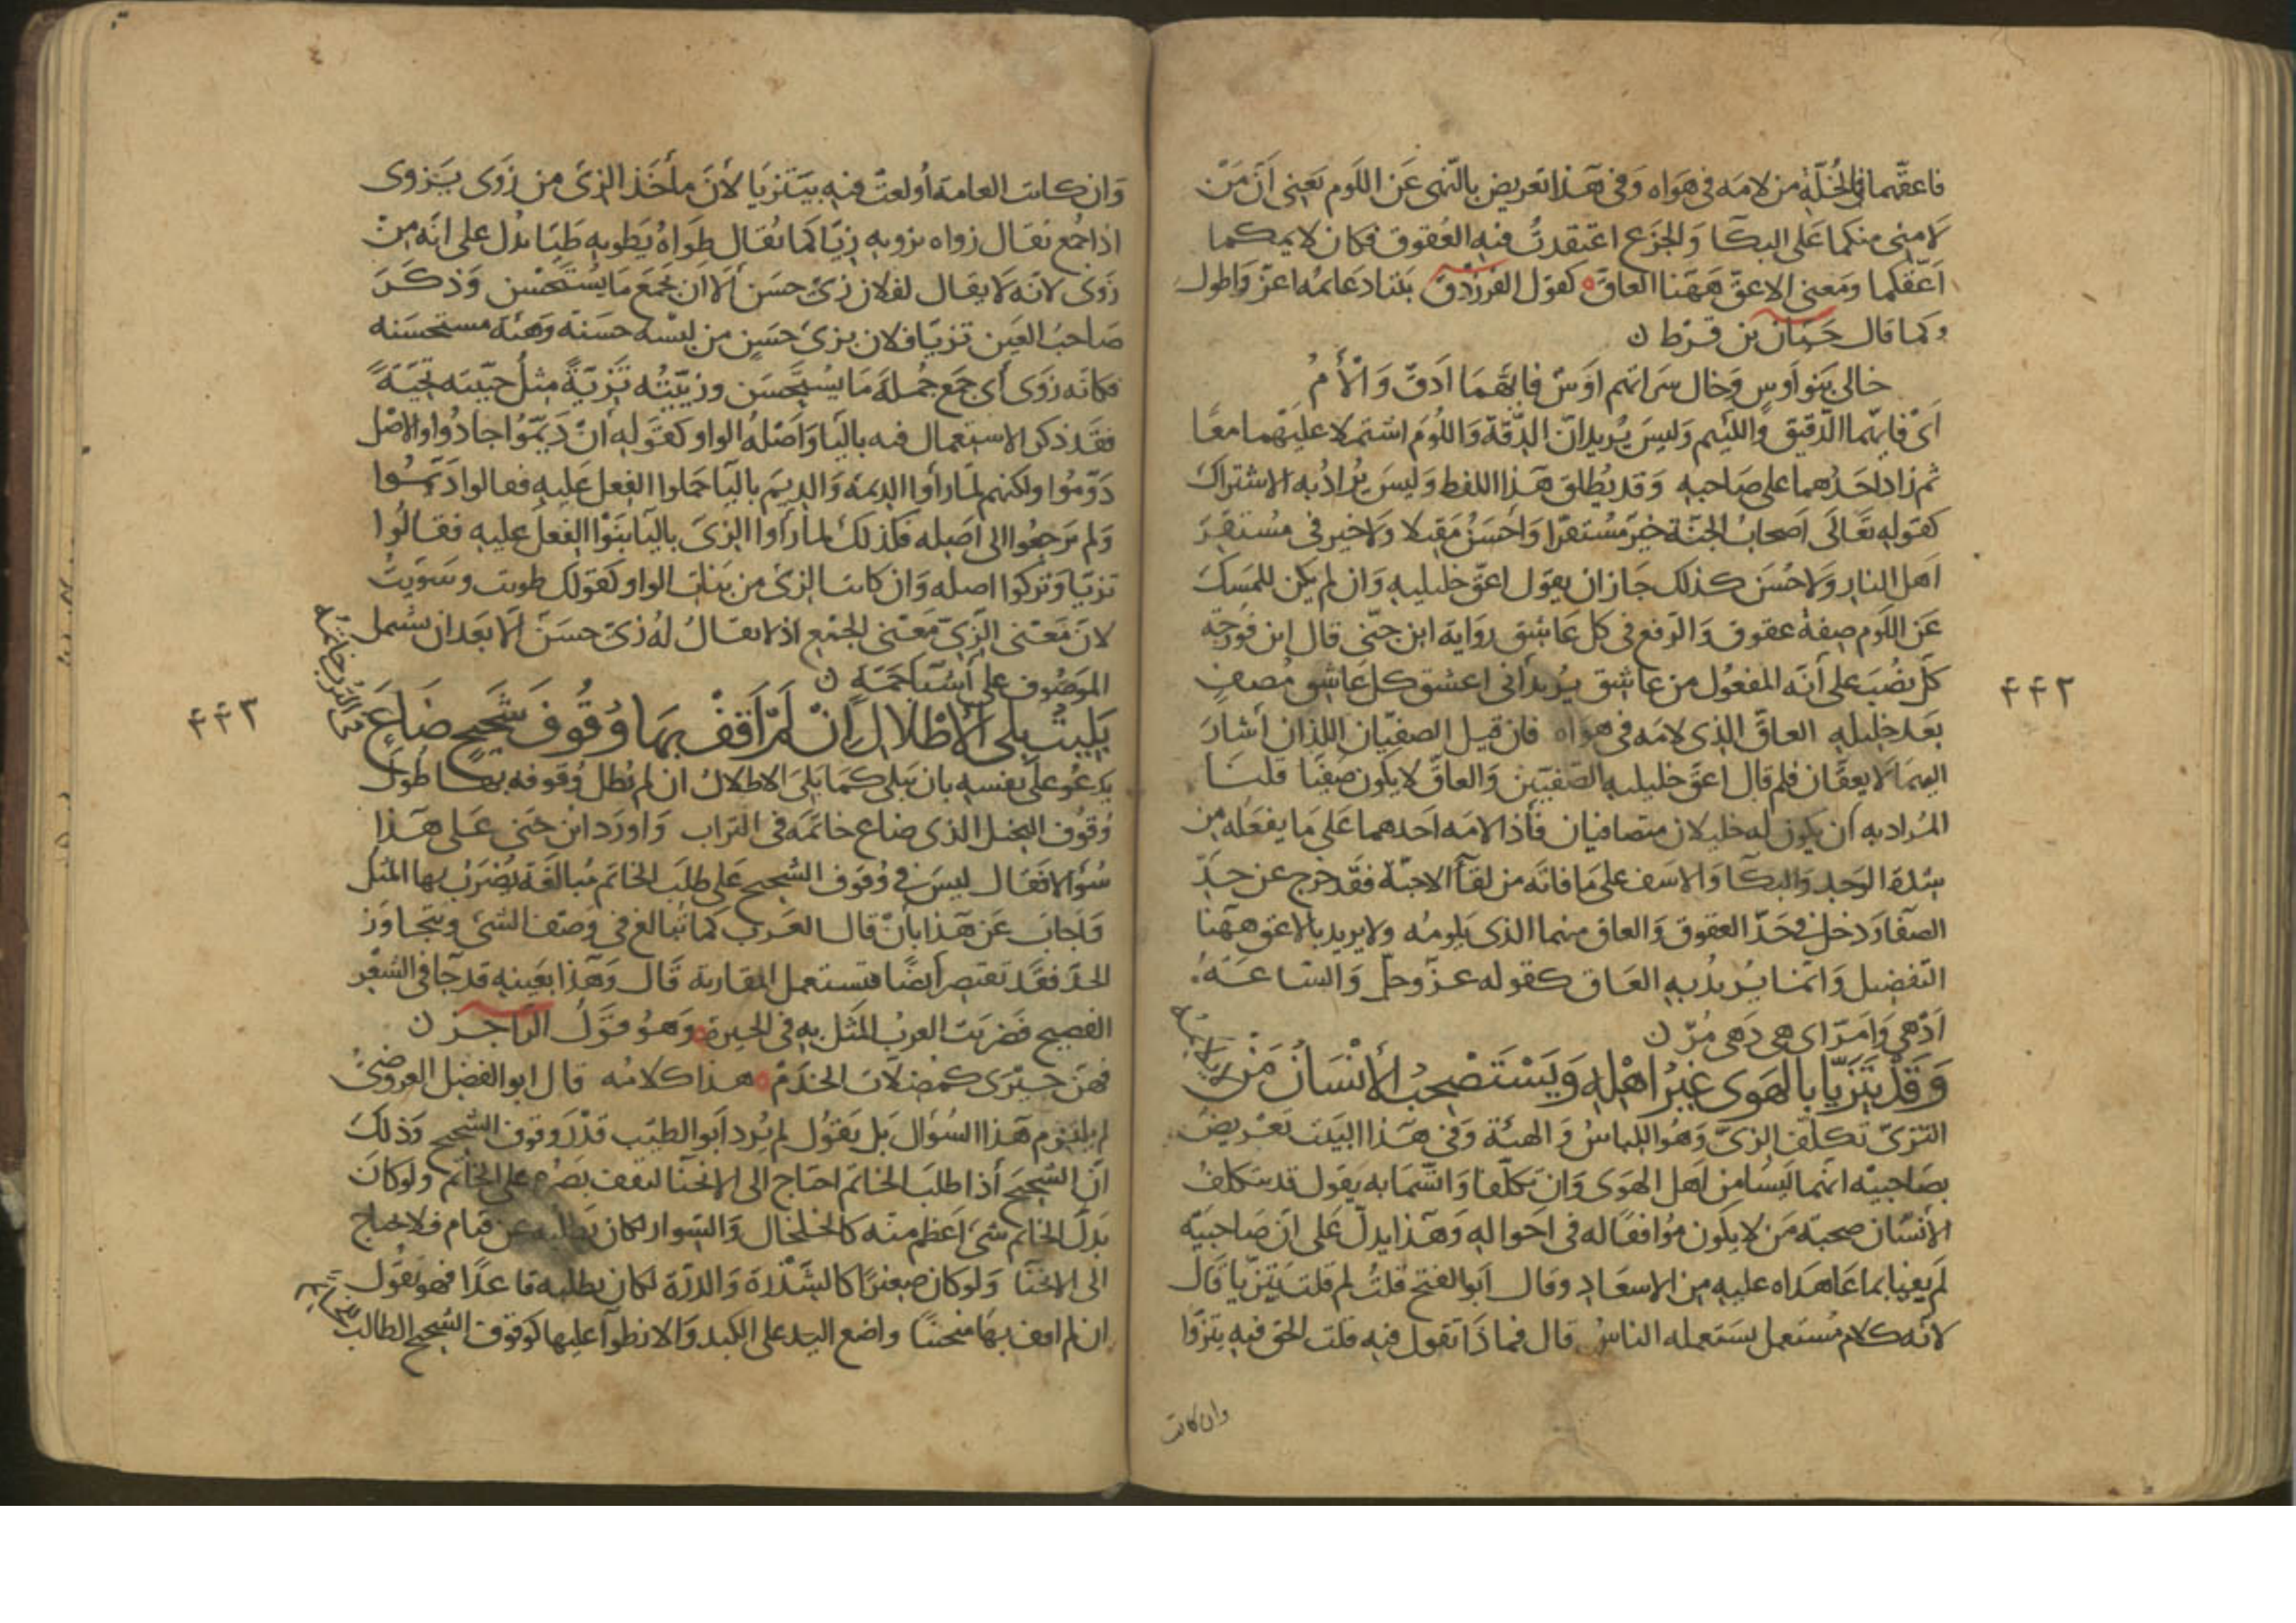 فاعقّهما في الخُلّة من لامَه في هَوَاه وَفي هَذا تعريض بالنّهى عَن اللوم يَعنى أنّ مَنْ
لامنى منكما عَلى البكآ وَالجَزَع اعتقدتُ فيه العُقوق فكان لايمكما
اَعقّكما ومَعنى الاعقّ هَهنا العاقّ كقول الفرزدق بَيتا دعائمه اعزّ وَاطول
وكما قال حسّان بن قرط ن
خالى بَنو اَوسٍ وَخال سَراتهم اوَسٌ فايّهمَا اَدقّ وَالْأمُ
اَىْ فايّهما الدّقيق واللئيم وَليسَ يُريد انّ الدّقّة وَاللّومَ اشتملا عليهما معًا
ثم زاد احَدُهما على صَاحبه وَقد يُطلق هَذا اللفظ وَليسَ يُرادُ به الاشتراك
كقوله تعَالَى اَصحابُ الجنّة خيرٌ مُستقرّا وَاَحسَنُ مَقيلا وَلا خير في مُستقرّ
اَهل النار وَلا حُسَن كذلك جَاز ان يقول اعقّ خليليه وَان لم يكن للممسك
عَن اللّوم صِفةُ عقوق وَالرّفع في كل عَاشق رواية ابن جنّى قال ابن فورجة
كلّ نصُبَ على أنّه المفعُول من عاشق يُريد أنى اعشق كل عَاشق مُصفٍ
بَعد خليله العاقّ الذى لامَه في هواه فان قيل الصفيّان اللذان أشارَ
اليهمَا لا يعقّان فلم قال اعقّ خليليه الصّفيّين وَالعاقّ لا يكون صَفيّا قلنَا
المُراد به أن يكون له خليلان متصافيان فأذا لامَه اَحدهما عَلى مَا يفعَله من
شدّة الوَجد والبكآ وَالاسَف على مَا فاتَه من لقآ الاحبّة فقد خرج عن حَدّ
الصّفا وَدخل في حَدّ العقوق وَالعاق منهما الذى يَلومُه ولا يريد بالاعق ههنا
التّفضيل وَانّما يُريدُ به العَاق كقوله عزّ وجلّ وَالسّاعَةُ
اَدْهى وَاَمَرّ اى هى دَهى مُرّ ن
وَقَدْ يَتَزَيَّا بالهَوى غَيرُ اهْلِهِ وَيَسْتَصْحِبُ الأنْسَانُ مَنْ لا يلائمه
التزىّ تكلّف الزىّ وَهُو اللباسُ وَ الهيئة وَفي هَذا البَيت تعْريض
بصَاحبيْه انّهما ليسَا من اَهل الهوَى وَان تكلّفا وَاتّسَمَا به يَقول قد يتكلف
الأنسَان صحبة مَن لا يكون مُوافقًا له في احَواله وَهَذا يدلّ عَلى انّ صَاحبيْه
لم يعيا بما عَاهَداه عليه من الاسعَاد وقال اَبو الفتح قلتُ لم قلت يَتزيّا قَال
لانّه كلام مُستعمل يسَتعمله الناسُ قال فما ذا تقول فيه قلت الحق فيه يتزوّا
وان كانت
٤٤٢
وَان كانت العامة أُولعتْ فيه بيَتَزيَا لأنّ مأخَذ الزىّ من زَوَى يَزوى
اذا جُمع يُقال زواه يزويه زِيّا كَما يُقال طَوَاهُ يَطويهِ طَيّا يدُل على انّه منْ
زَوَى لانّه لَا يقال لفلان زىّ حسَن اِلّا ان يجمَع مَا يُستَحْسَن وَذكَرَ
صَاحبُ العَين تزيّا فلان بزىّ حَسَنٍ من لبسَة حسَنة وَهيئة مستحسَنه
فكانّه زَوَى أَى جمَع جُملةَ مَا يُستَحسَن وزَيّيتُه تَزيّةً مثلُ حيّيته تحيّةً
فقَد ذكر الاستِعمال فيه باليآ وَاَصْلهُ الواو كقَوله أنْ دَيّمُوا جادُوا والاصْل
دَوّمُوا ولكنهم لمّا رأَوا الدّيمة وَالديَم باليآ حَملوا الفِعل عَليه فقالوا دَيّمُوا
وَلم يَرجِعُوا الى اَصله فكذلكَ لما رأوا الزىّ باليآ بَنَوْا الفعلَ عليه فقالُوا
تزيّا وَتركُوا اصله وَان كانت الزىّ من بنات الواو كقولك طويت وسَوّيتُ
لانّ مَعْنى الزّىّ مَعْنى الجمْع اذ لا يقَالُ لهُ زىّ حسَن الّا بَعد ان يشمل
الموَصُوف على أشيآ جَمّةٍ ن
بَلِيتُ بِلَى الْأطْلَالِ إنْ لَمْ اَقِفْ بِهَا وُقُوفَ شَحِيحٍ ضَاعَ في التُرب خاتمه
يدعُو على نفسه بان يَبلى كمَا يَبلى الاطلالُ ان لم يُطل وُقوفه بها طولَ
وُقوف البخيل الذى ضاع خاتمَه في التراب وَاورَد ابن جنى عَلى هَذا
سُؤالا فقَال ليسَ في وُقوف الشّحيح عَلى طلَب الخاتم مُبالغَة يُضرَبُ بها المثل
وَاَجابَ عَن هَذا بأنْ قال العَرب كما تُبالغ في وَصْف الشّىْ وَيتجاوَز
الحدّ فقَد تقتصر أيضًا فتستعمل المقاربة قَال وَهَذا بعَينه قد جَآ في الشّعْر
الفصيح فضَربَت العربُ المثَل به في الحيرة وَهوُ قوَلُ الرّاجز ن
فهنّ حَيْرَى كمضلّات الخدَمْ هذا كلامُه قال ابو الفضل العروضىُ
لم يلتزم هَذا السُؤال بَل يَقوُل لم يُرد اَبو الطيّب قَدْرَ وقوف الشحيح وَذلكَ
انّ الشحيحَ أذا طلَبَ الخاتم احتاج الى الانحنآ ليقف بصَره على الخاتم ولو كانَ
بَدلَ الخاتم شىْ اَعظم منه كالخلخال وَالسّوار لكان يَطلبه عن قيام فلا يحتاج
الى الانحنَا وَلو كان صغيرًا كالشّذْرة وَالدرّة لكان يطلبه قاعدًا فهو يقُول
ان لم اقف بهَا منحنيًا واضع اليَد على الكبد وَالانطوآ عليها كوقوف الشحيح الطالب للخاتم
٤٤٣